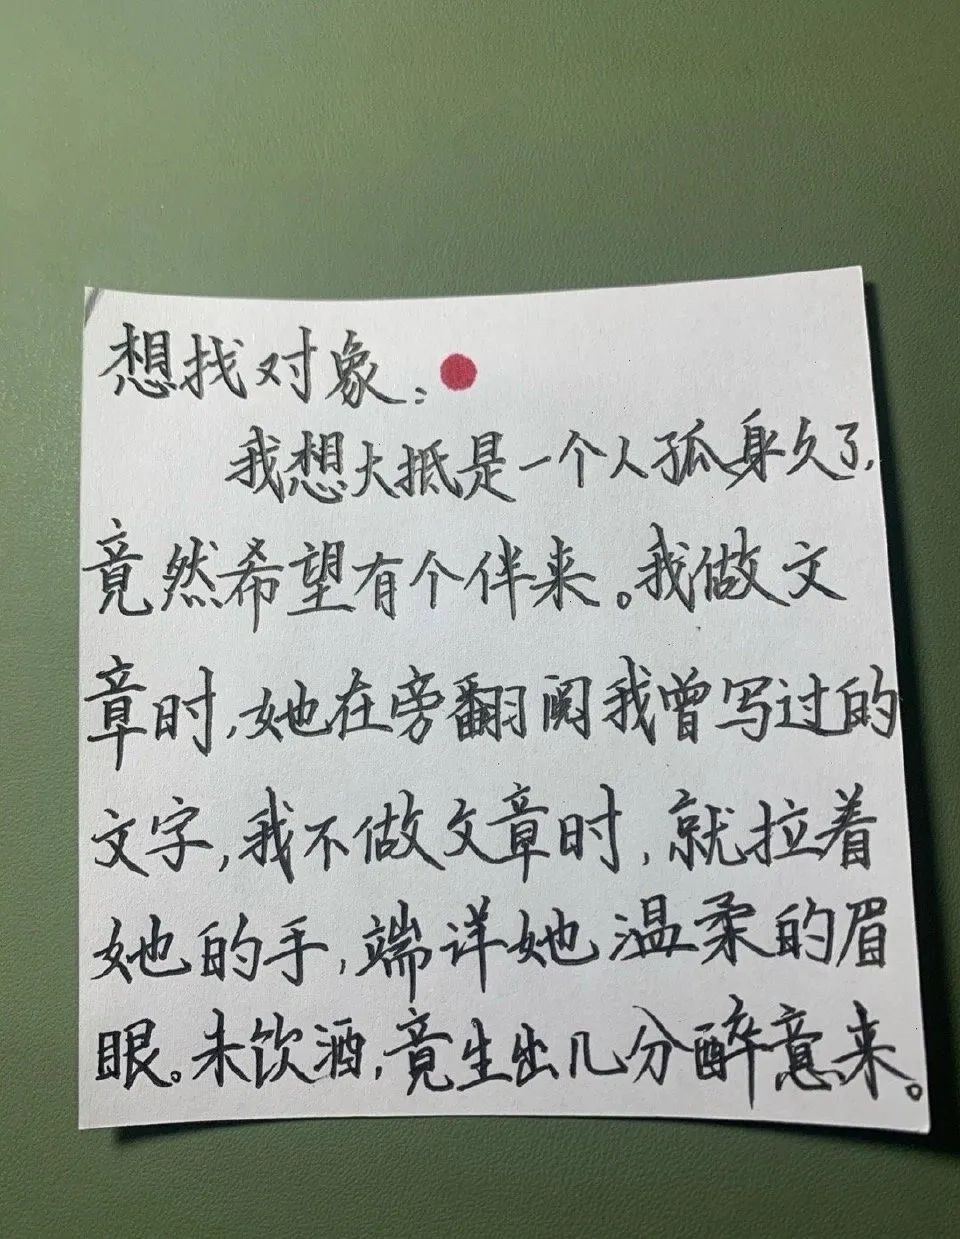 想找对象：
我想大抵是一个人孤身久了，
竟然希望有个伴来。我做文
章时，她在旁翻阅我曾写过的
文字，我不做文章时，就拉着
她的手，端详她温柔的眉
眼。未饮酒，竟生出几分醉意来。